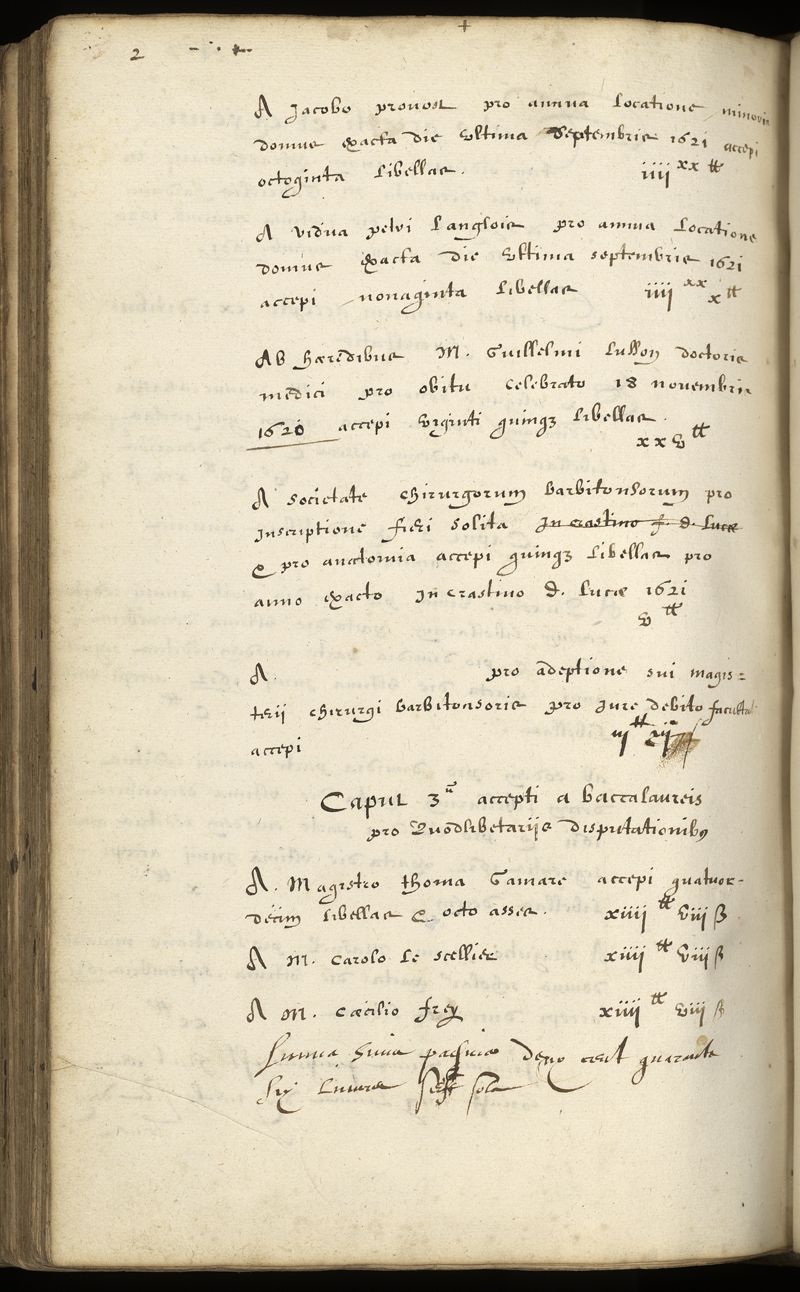 2
A Jacobo provost pro annua locatione minoris
domus exacta die ultima septembris 1621 accepi
octoginta libellas. iiii xx tt
A vidua pelvi Langlois pro annua locatione
domus exacta die ultima septembris 1621
accepi nonaginta libellas iiii xx x tt
Ab hæredibus M. Guillelmi Lusson doctoris
medici pro obitu celebrato 18 novembris
1620 accepi viginti quinq3 libellas.
xxv tt
A societate chirurgorum barbitonsorum pro
inscriptione fieri solita in crastino f. d. Lucæ
& pro anatomia accepi quinq3 libellas pro
anno exacto in crastino d. Lucæ 1621
v tt
A. pro adeptione sui magis=
terii chirurgi barbitonsoris pro jure debito facultati
accepi
Caput 3 accepti a baccalaureis
pro Quodlibetariis disputationibus
A. Magistro thoma Gamare accepi quatuor-
decim libellas & octo asses. xiiii tt viii ß
A M. Carolo le scellier xiiii tt viii ß
A M. Cæcilio frey xiiii tt viii ß
Summa deux cent quarante
six livres sols